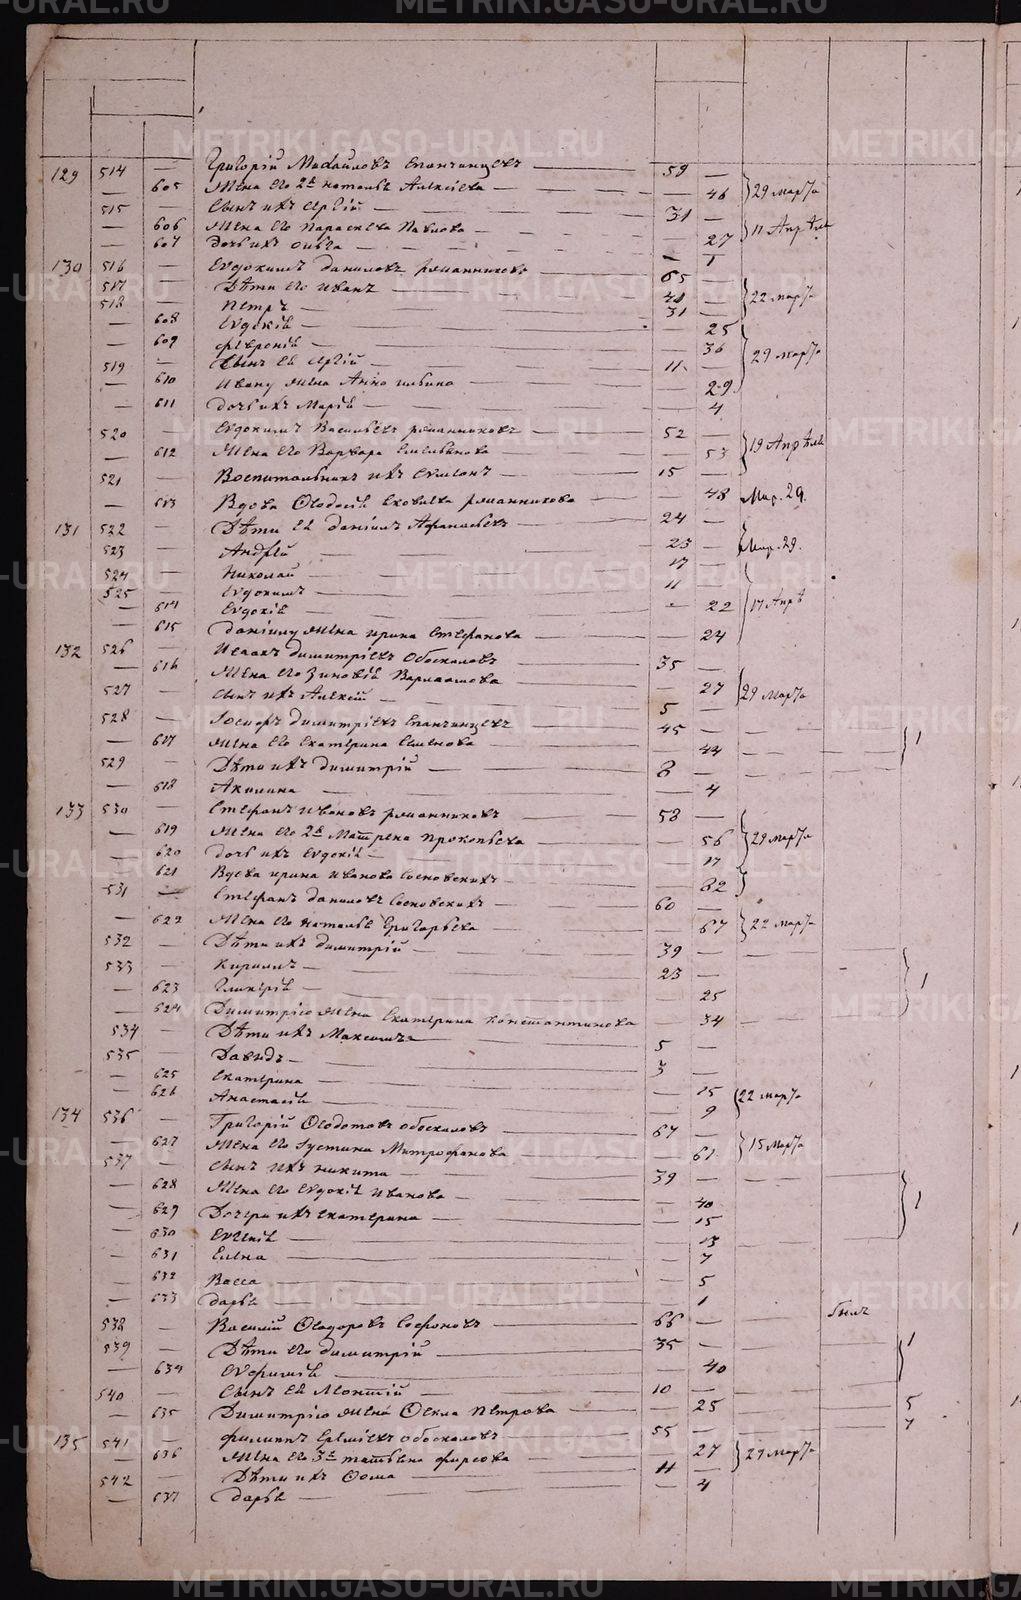 129 514 — Григорій Михайловъ Епанчинцевъ 59 —
— 605 Жена его 2я Наталья Алексіева — 46 29 марта
515 — Сынъ ихъ Сергій 31 —
— 606 Жена его Параскева Павлова — 27 11 Апрѣля
— 607 Дочь ихъ Ольга — 1
130 516 — Евдокимъ Даниловъ 65
517 — Дѣти его Иванъ 41 — 22 марта
518 — Петръ 31 —
— 608 Евдокія — 25
— 609 Февронія — 36 29 марта
519 — Сынъ ея Сергій 11 —
— 610 Ивану жена Анна — 29
— 611 Дочь ихъ Марія — 4
520 — Евдокимъ Васильевъ 52 —
— 612 Жена его Варвара Емельянова — 53 19 Апрѣля
521 — Воспитанникъ ихъ Симеонъ 15 —
— 613 Вдова Ѳеодосія — 48 Мар. 29.
131 522 — Дѣти ея Даніилъ Афанасьевъ 24 —
523 — Андрей 23 — Мар. 29.
524 — Николай 17 —
525 — Евдокимъ 11
— 614 Евдокія — 22 17 Апрѣ
— 615 Даніилу жена Ирина Стефанова — 24
132 526 — Исаакъ Димитріевъ Обоскаловъ 35 —
— 616 Жена его Зиновія Варлаамова — 27 29 Марта
527 — Сынъ ихъ Алексій 5 —
528 — Іосифъ Димитріевъ Епанчинцевъ 45 —
— 617 Жена его Екатерина Семенова — 44 — 1
529 — Дѣти ихъ Димитрій 8 —
— 618 Акилина — 4
133 530 — Стефанъ Ивановъ 58 —
— 619 Жена его 2я Матрена Прокопьева — 56 29 марта
— 620 Дочь ихъ Евдокія — 17
— 621 Вдова Ирина Иванова Сосновскихъ — 82
531 — Стефанъ Даниловъ Сосновскихъ 60 —
— 622 Жена его Наталья Григорьева — 67 22 марта
532 — Дѣти ихъ Димитрій 39 —
533 — Кириллъ 23 — 1
— 623 Гликерія — 25
— 624 Димитрію жена Екатерина Константинова — 34
534 — Дѣти ихъ Максимъ 5 —
535 — Давидъ 3 —
— 625 Екатерина — 15 22 марта
— 626 Анастасія — 9
134 536 — Григорій Ѳеодотовъ Обоскаловъ 67 —
— 627 Жена его Іустина Митрофанова — 61 15 марта
537 — Сынъ ихъ Никита 39 —
— 628 Жена его Евдокія Иванова — 40 1
— 629 Дочери ихъ Екатерина — 15
— 630 Евгенія — 13
— 631 Елена — 7
— 632 Васса — 5
— 633 Дарья — 1
538 — Василій Ѳеодоровъ Софоновъ 66 — былъ
539 — Дѣти его Димитрій 35 — 1
— 634 Евфимія — 40
540 — Сынъ ея Леонтій 10 —
— 635 Димитрію жена Ѳекла Петрова — 25 5
135 541 — Филиппъ Ереміевъ Обоскаловъ 55 — 7
— 636 Жена его 3я Татьяна Фирсова — 27 29 марта
542 — Дѣти ихъ Ѳома 11 —
— 637 Дарья — 4
METRIKI.GASO-URAL.RU